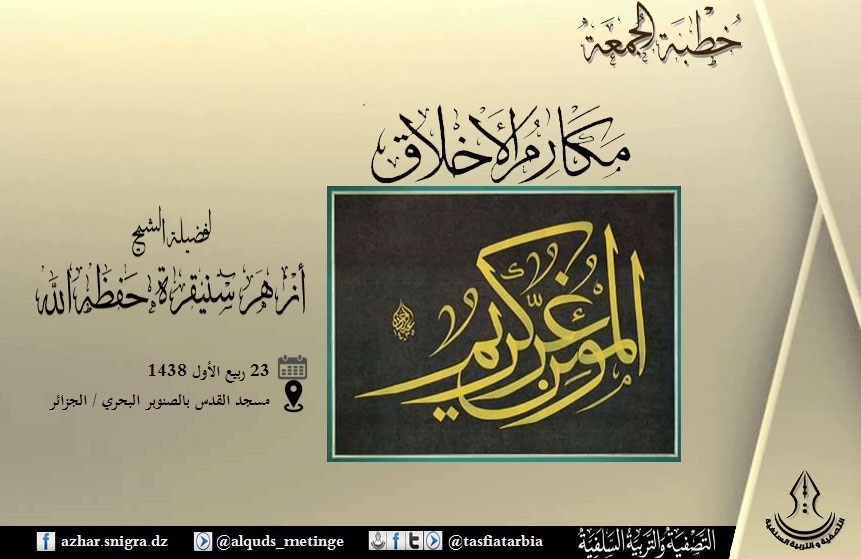 خُطْبَة الجُمعَة
مَكَارِمُ الأَخْلَاق
لفضيلة الشيخ
أزهَر سنيقرة حَفظَه الله
23 ربيع الأول 1438
مسجد القدس بالصنوبر البحري / الجزائر
المؤمن غرّ كريم
azhar.snigra.dz
@alquds_metinge
@tasfiatarbia
التصفية والتربية السلفية
التصفية و التربية السلفية